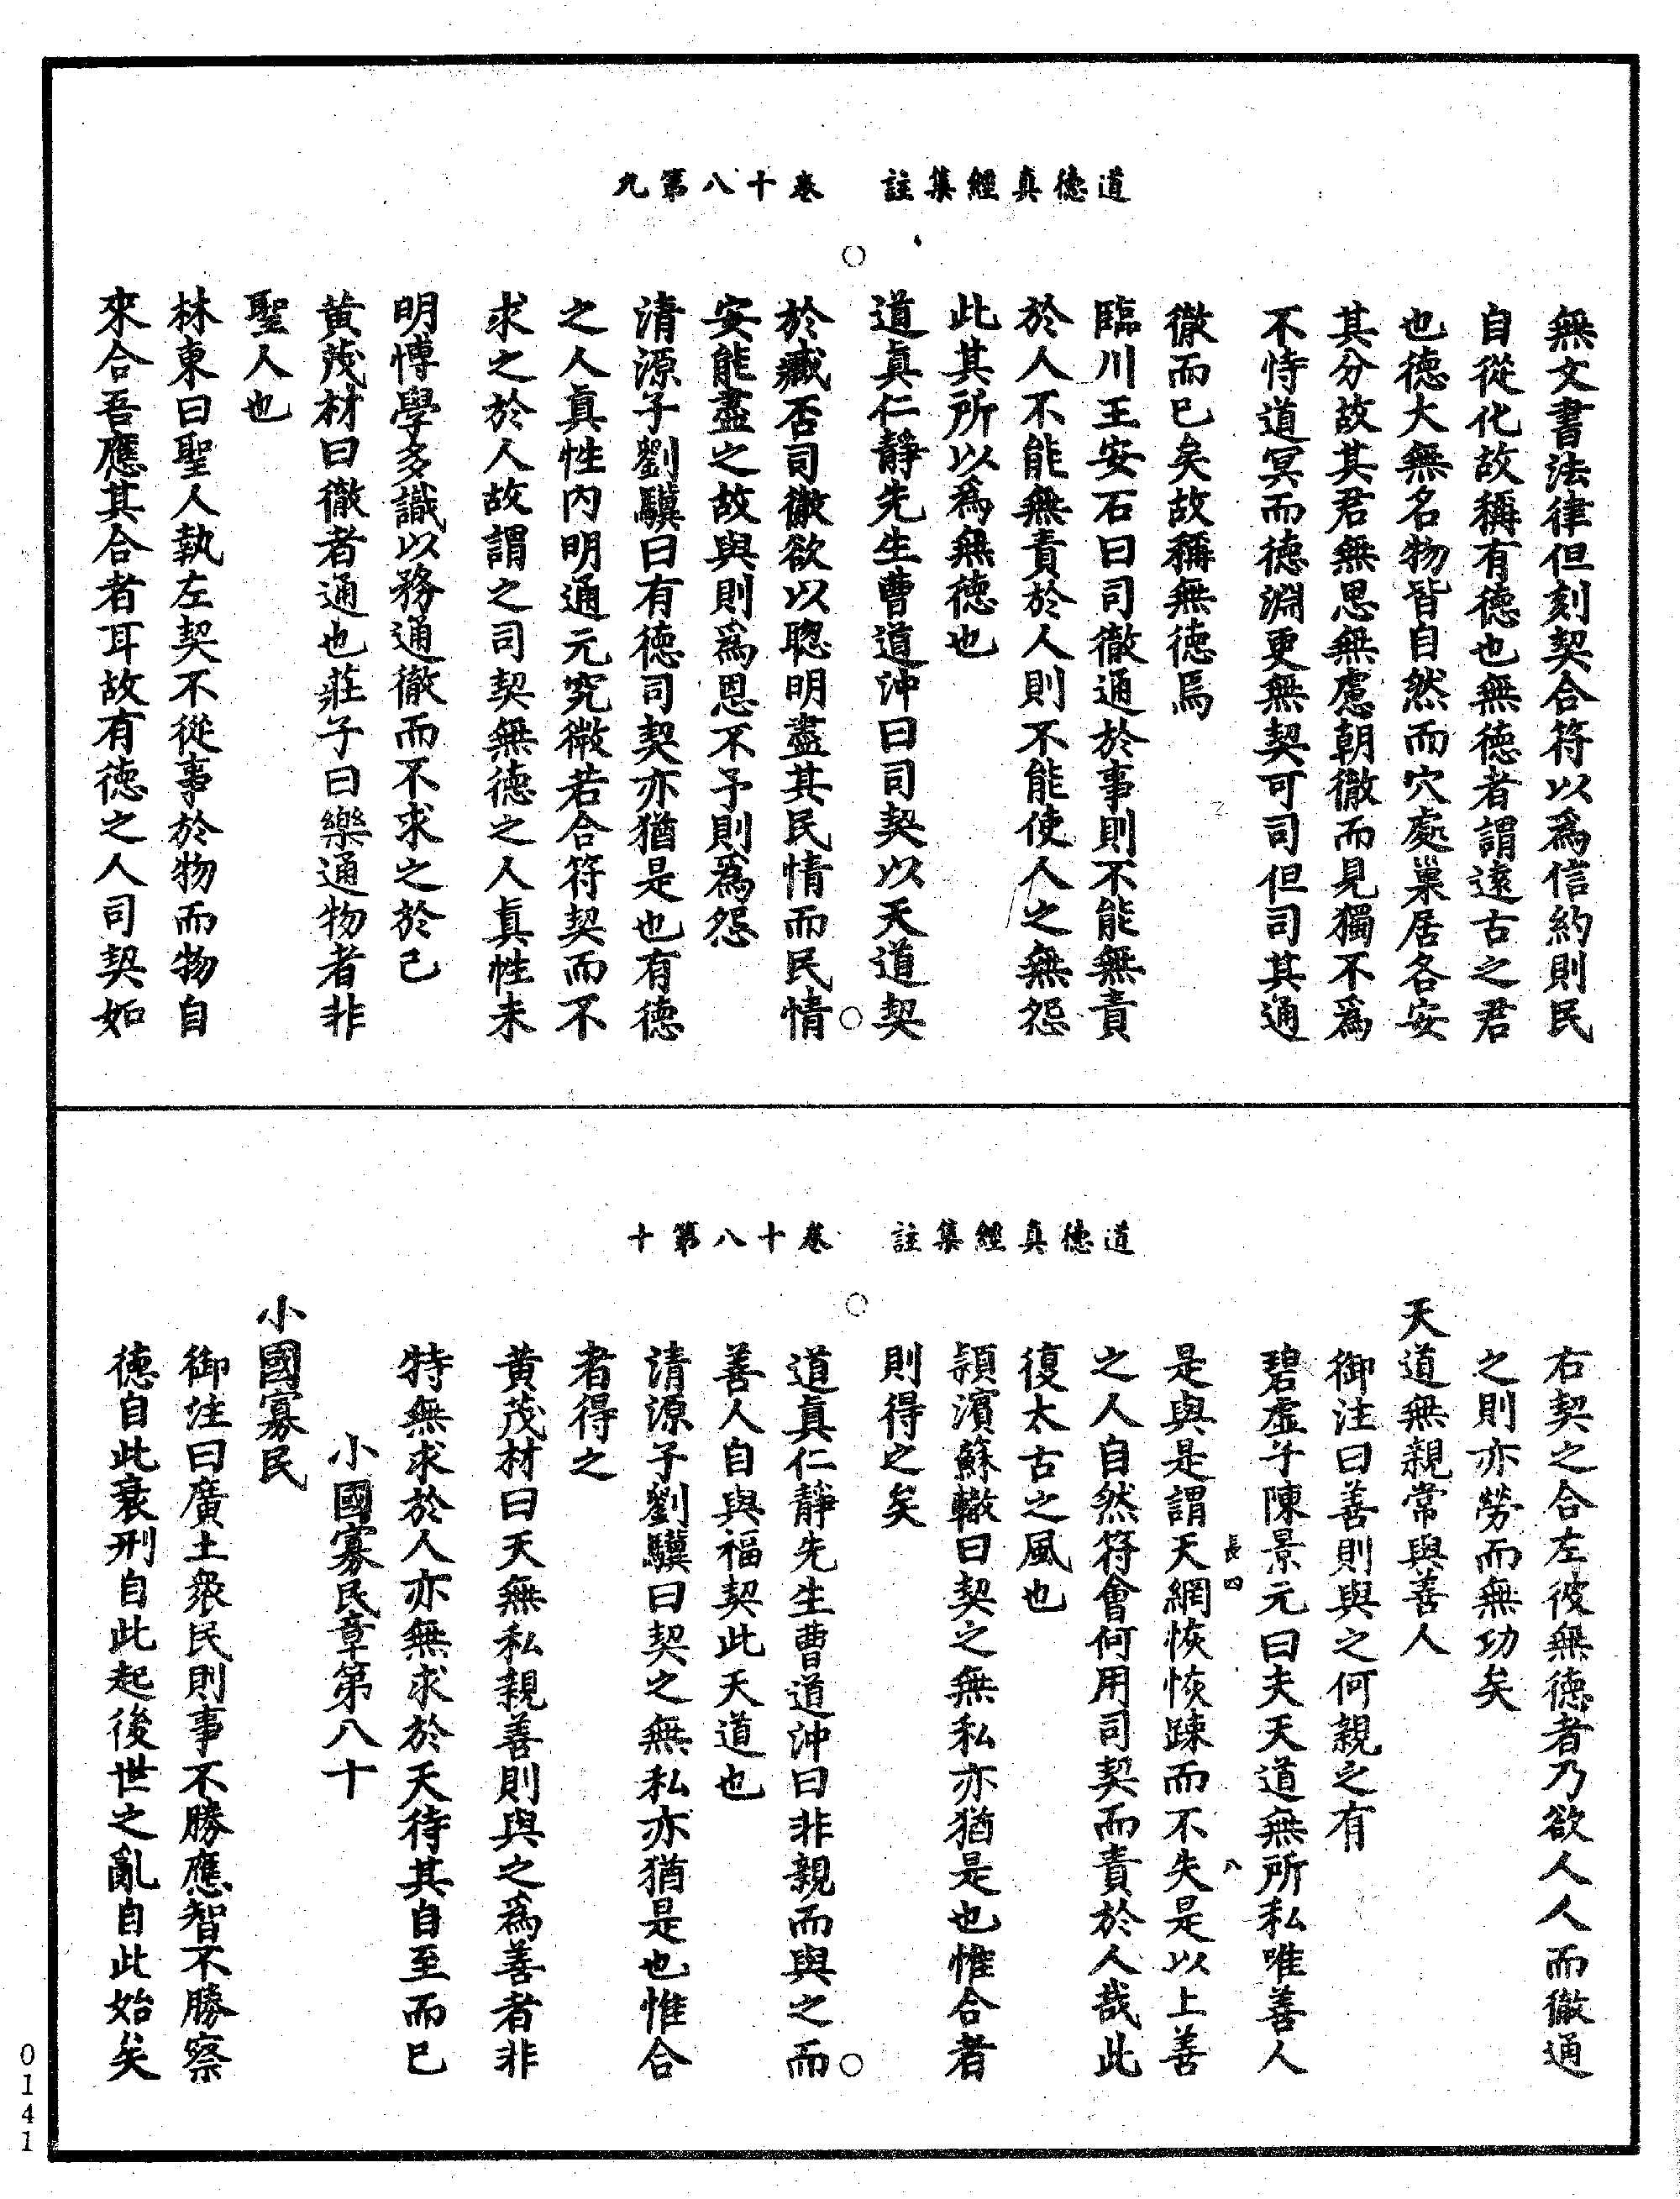 道德真經集註　卷十八第九
無文書法律但刻契合符以爲信約則民
自從化故稱有德也無德者謂遠古之君
也德大無名物皆自然而穴處巢居各安
其分故其君無思無慮朝徹而見獨不爲
不恃道冥而德淵更無契可司但司其通
徹而已矣故稱無德焉
臨川王安石曰司徹通於事則不能無責
於人不能無責於人則不能使人之無怨
此其所以爲無德也
道真仁靜先生曹道沖曰司契以天道契
於臧否司徹欲以聰明盡其民情而民情
安能盡之故與則爲恩不予則爲怨
清源子劉驥曰有德司契亦猶是也有德
之人真性內明通元究微若合符契而不
求之於人故謂之司契無德之人真性未
明博學多識以務通徹而不求之於己
黃茂材曰徹者通也莊子曰樂通物者非
聖人也
林東曰聖人執左契不從事於物而物自
來合吾應其合者耳故有德之人司契如
道德真經集註　卷十八第十
右契之合左彼無德者乃欲人人而徹通
之則亦勞而無功矣
天道無親常與善人
御注曰善則與之何親之有
碧虛子陳景元曰夫天道無所私唯善人
長四　八
是與是謂天網恢恢踈而不失是以上善
之人自然符會何用司契而責於人哉此
復太古之風也
潁濱蘇轍曰契之無私亦猶是也惟合者
則得之矣
道真仁靜先生曹道沖曰非親而與之而
善人自與福契此天道也
清源子劉驥曰契之無私亦猶是也惟合
者得之
黃茂材曰天無私親善則與之爲善者非
特無求於人亦無求於天待其自至而已
小國寡民章第八十
小國寡民
御注曰廣土衆民則事不勝應智不勝察
德自此衰刑自此起後世之亂自此始矣
0141